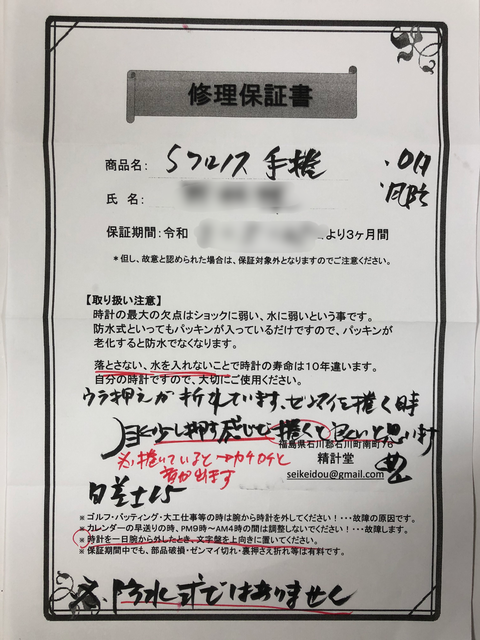 修理保証書
商品名: Sクロノス 手捲 ・OH
氏 名:
保証期間:令和 より3ヶ月間
*但し、故意と認められた場合は、保証対象外となりますのでご注意ください。
【取り扱い注意】
時計の最大の欠点はショックに弱い、水に弱いという事です。
防水式といってもパッキンが入っているだけですので、パッキンが
老化すると防水でなくなります。
落とさない、水を入れないことで時計の寿命は10年違います。
自分の時計ですので、大切にご使用ください。
ウラ押えが折れています、ゼンマイを捲く時
少し押す感じで捲くと良いと思います
福島県石川郡石川町南町76
精計堂
seikeidou@gmail.com
捲いているとカチカチと
音が出ます
日差±15
※ゴルフ・バッティング・大工仕事等の時は腕から時計を外してください!・・・故障の原因です。
※カレンダーの早送りの時、PM9時~AM4時の間は調整しないでください!・・・故障します。
※時計を一日腕から外したとき、文字盤を上向きに置いてください。
※保証期間中でも、部品破損・ゼンマイ切れ・裏押さえ折れ等は有料です。
防水式ではありません